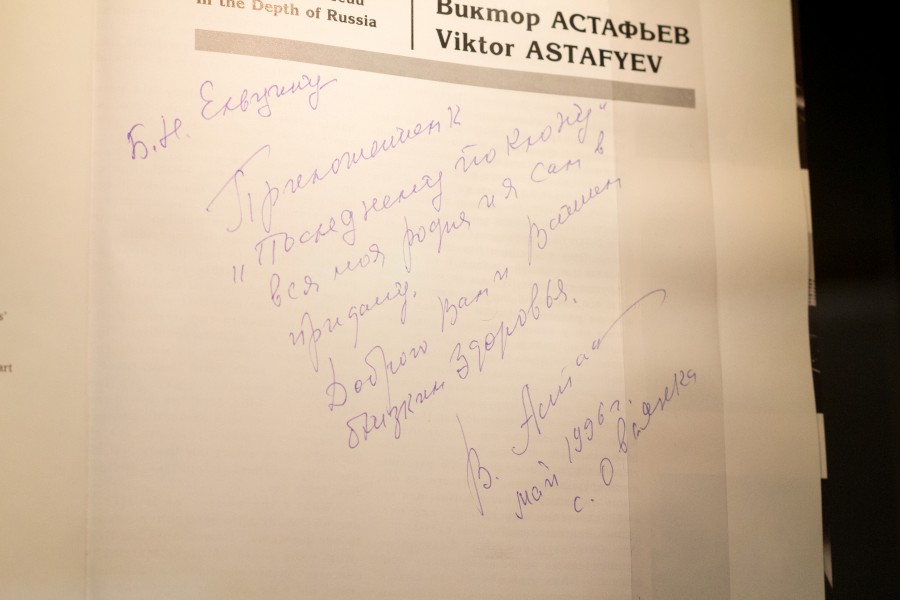 in the Depth of Russia
Виктор АСТАФЬЕВ
Viktor ASTAFYEV
Б.Н. Ельцину
Приложением к
"Последнему поклону"
вся моя родня и я сам в
придачу.
Доброго Вам и Вашим
близким здоровья.
В. Астаф
май 1996 г.
с. Овсянка